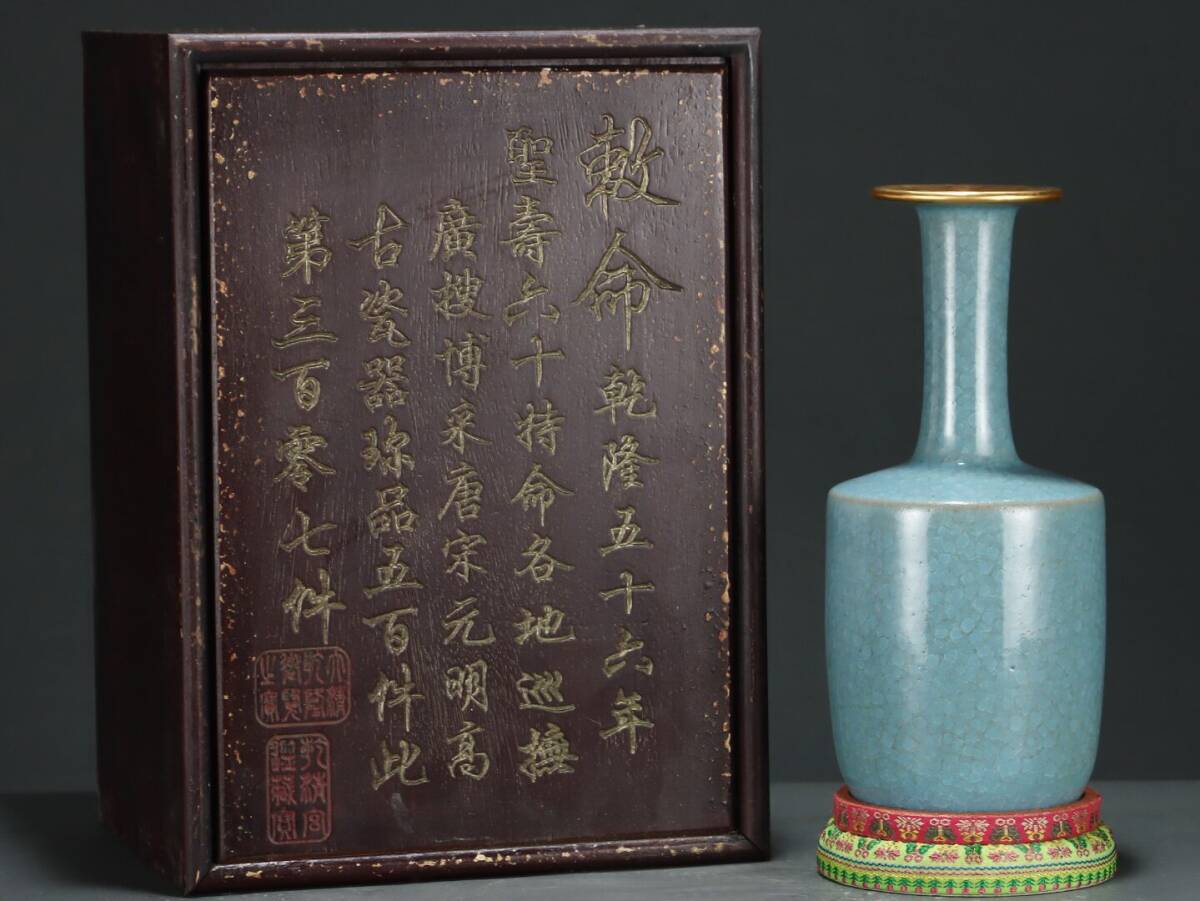 敕命乾隆五十六年
聖壽六十特命各地巡撫
廣搜博采唐宋元明高
古瓷器珎品五百件此
第三百零七件